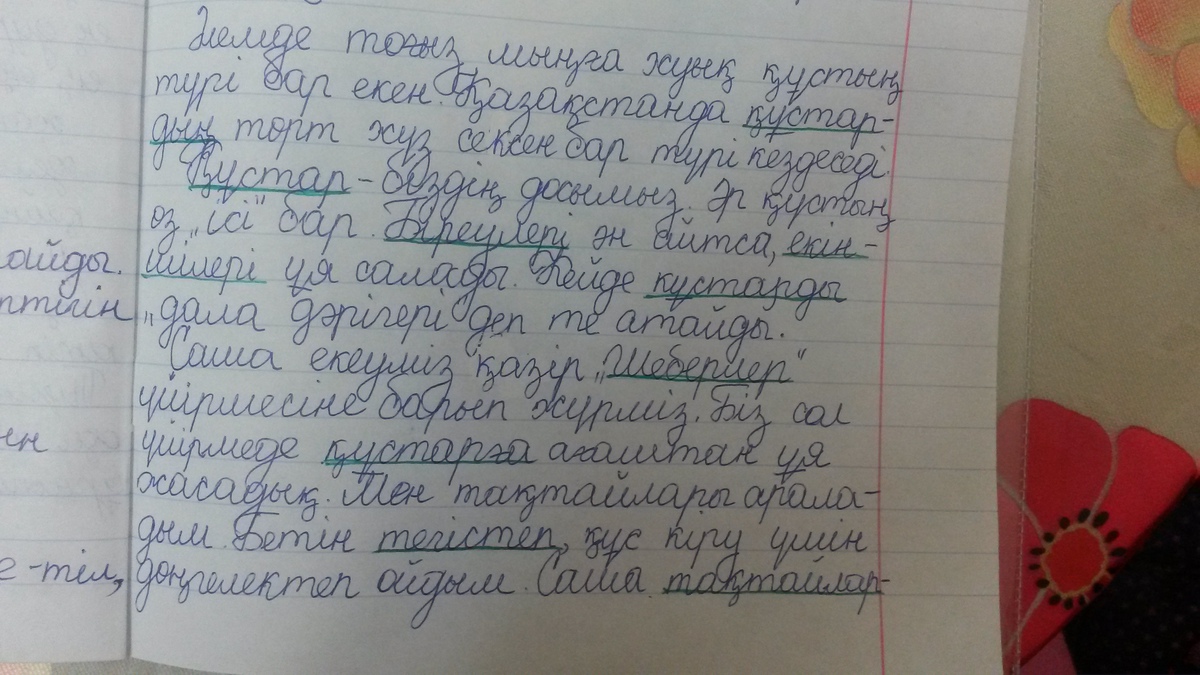 Әлемде тоғыз мыңға жуық құстың
түрі бар екен. Қазақстанда құстар-
дың төрт жүз сексен бар түрі кездеседі.
Құстар - біздің досымыз. Әр құстың
өз „ісі" бар. Біреулері ән айтса, екін-
шілері ұя салады. Кейде құстарды
„дала дәрігері" деп те атайды.
Саша екеуміз қазір „Шеберлер"
үйірмесіне барып жүрміз. Біз сол
үйірмеде құстарға ағаштан ұя
жасадық. Мен тақтайлары арала-
дым. Бетін тегістеп, құс кіру үшін
дөңгелектеп ойдым. Саша тақтайлар-
айды.
птігін
ен
е - тіл,